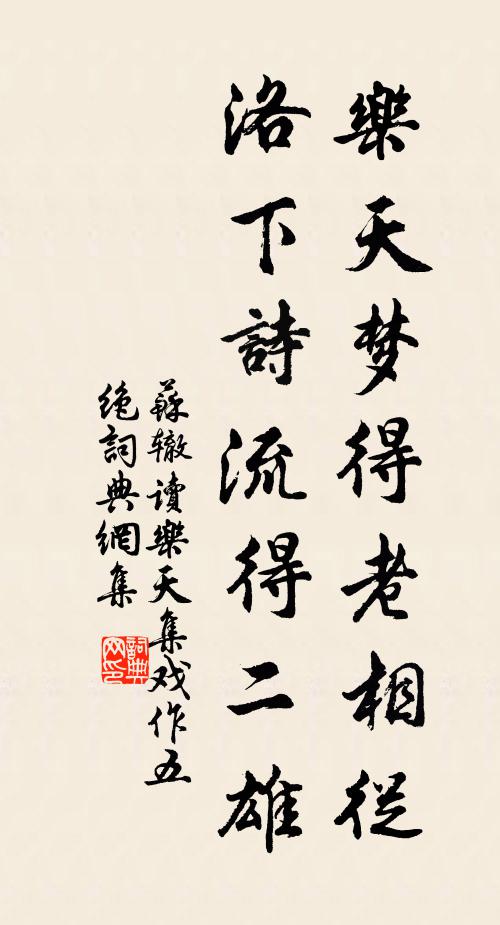 樂天梦得老相従
洛下詩流得二雄
蘇辙讀樂天集戏作五
绝詞典網集
詞典網印